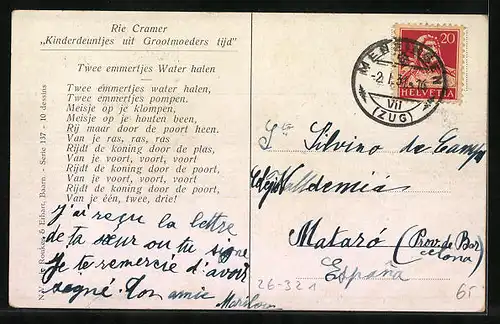 Rie Cramer
„Kinderdeuntjes uit Grootmoeders tijd"
Twee emmertjes Water halen
Twee emmertjes water halen,
Twee emmertjes pompen.
Meisje op je klompen,
Meisje op je houten been,
Rij maar door de poort heen.
Van je ras, ras, ras
Rijdt de koning door de plas,
Van je voort, voort, voort
Rijdt de koning door de poort,
Van je voort, voort, voort
Rijdt de koning door de poort,
Van je één, twee, drie!
J'ai reçu la lettre
de ta sœur ou tu signe
Je te remercie d'avoir
signé. Ton amie
Marilou
N.V. Roukes & Erhart, Baarn - Serie 137 - 10 dessins
MENZINGEN
VII
(ZUG)
20
HELVETIA
Silvino de
Valldemia
Mataró (Prov. de Bar
celona)
España
26-321
65